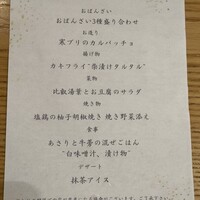 おばんざい
おばんざい3種盛り合わせ
お造り
寒ブリのカルパッチョ
揚げ物
カキフライ"柴漬けタルタル"
菜物
比叡湯葉とお豆腐のサラダ
焼き物
塩鶏の柚子胡椒焼き 焼き野菜添え
食事
あさりと牛蒡の混ぜごはん
"白味噌汁、漬け物"
デザート
抹茶アイス